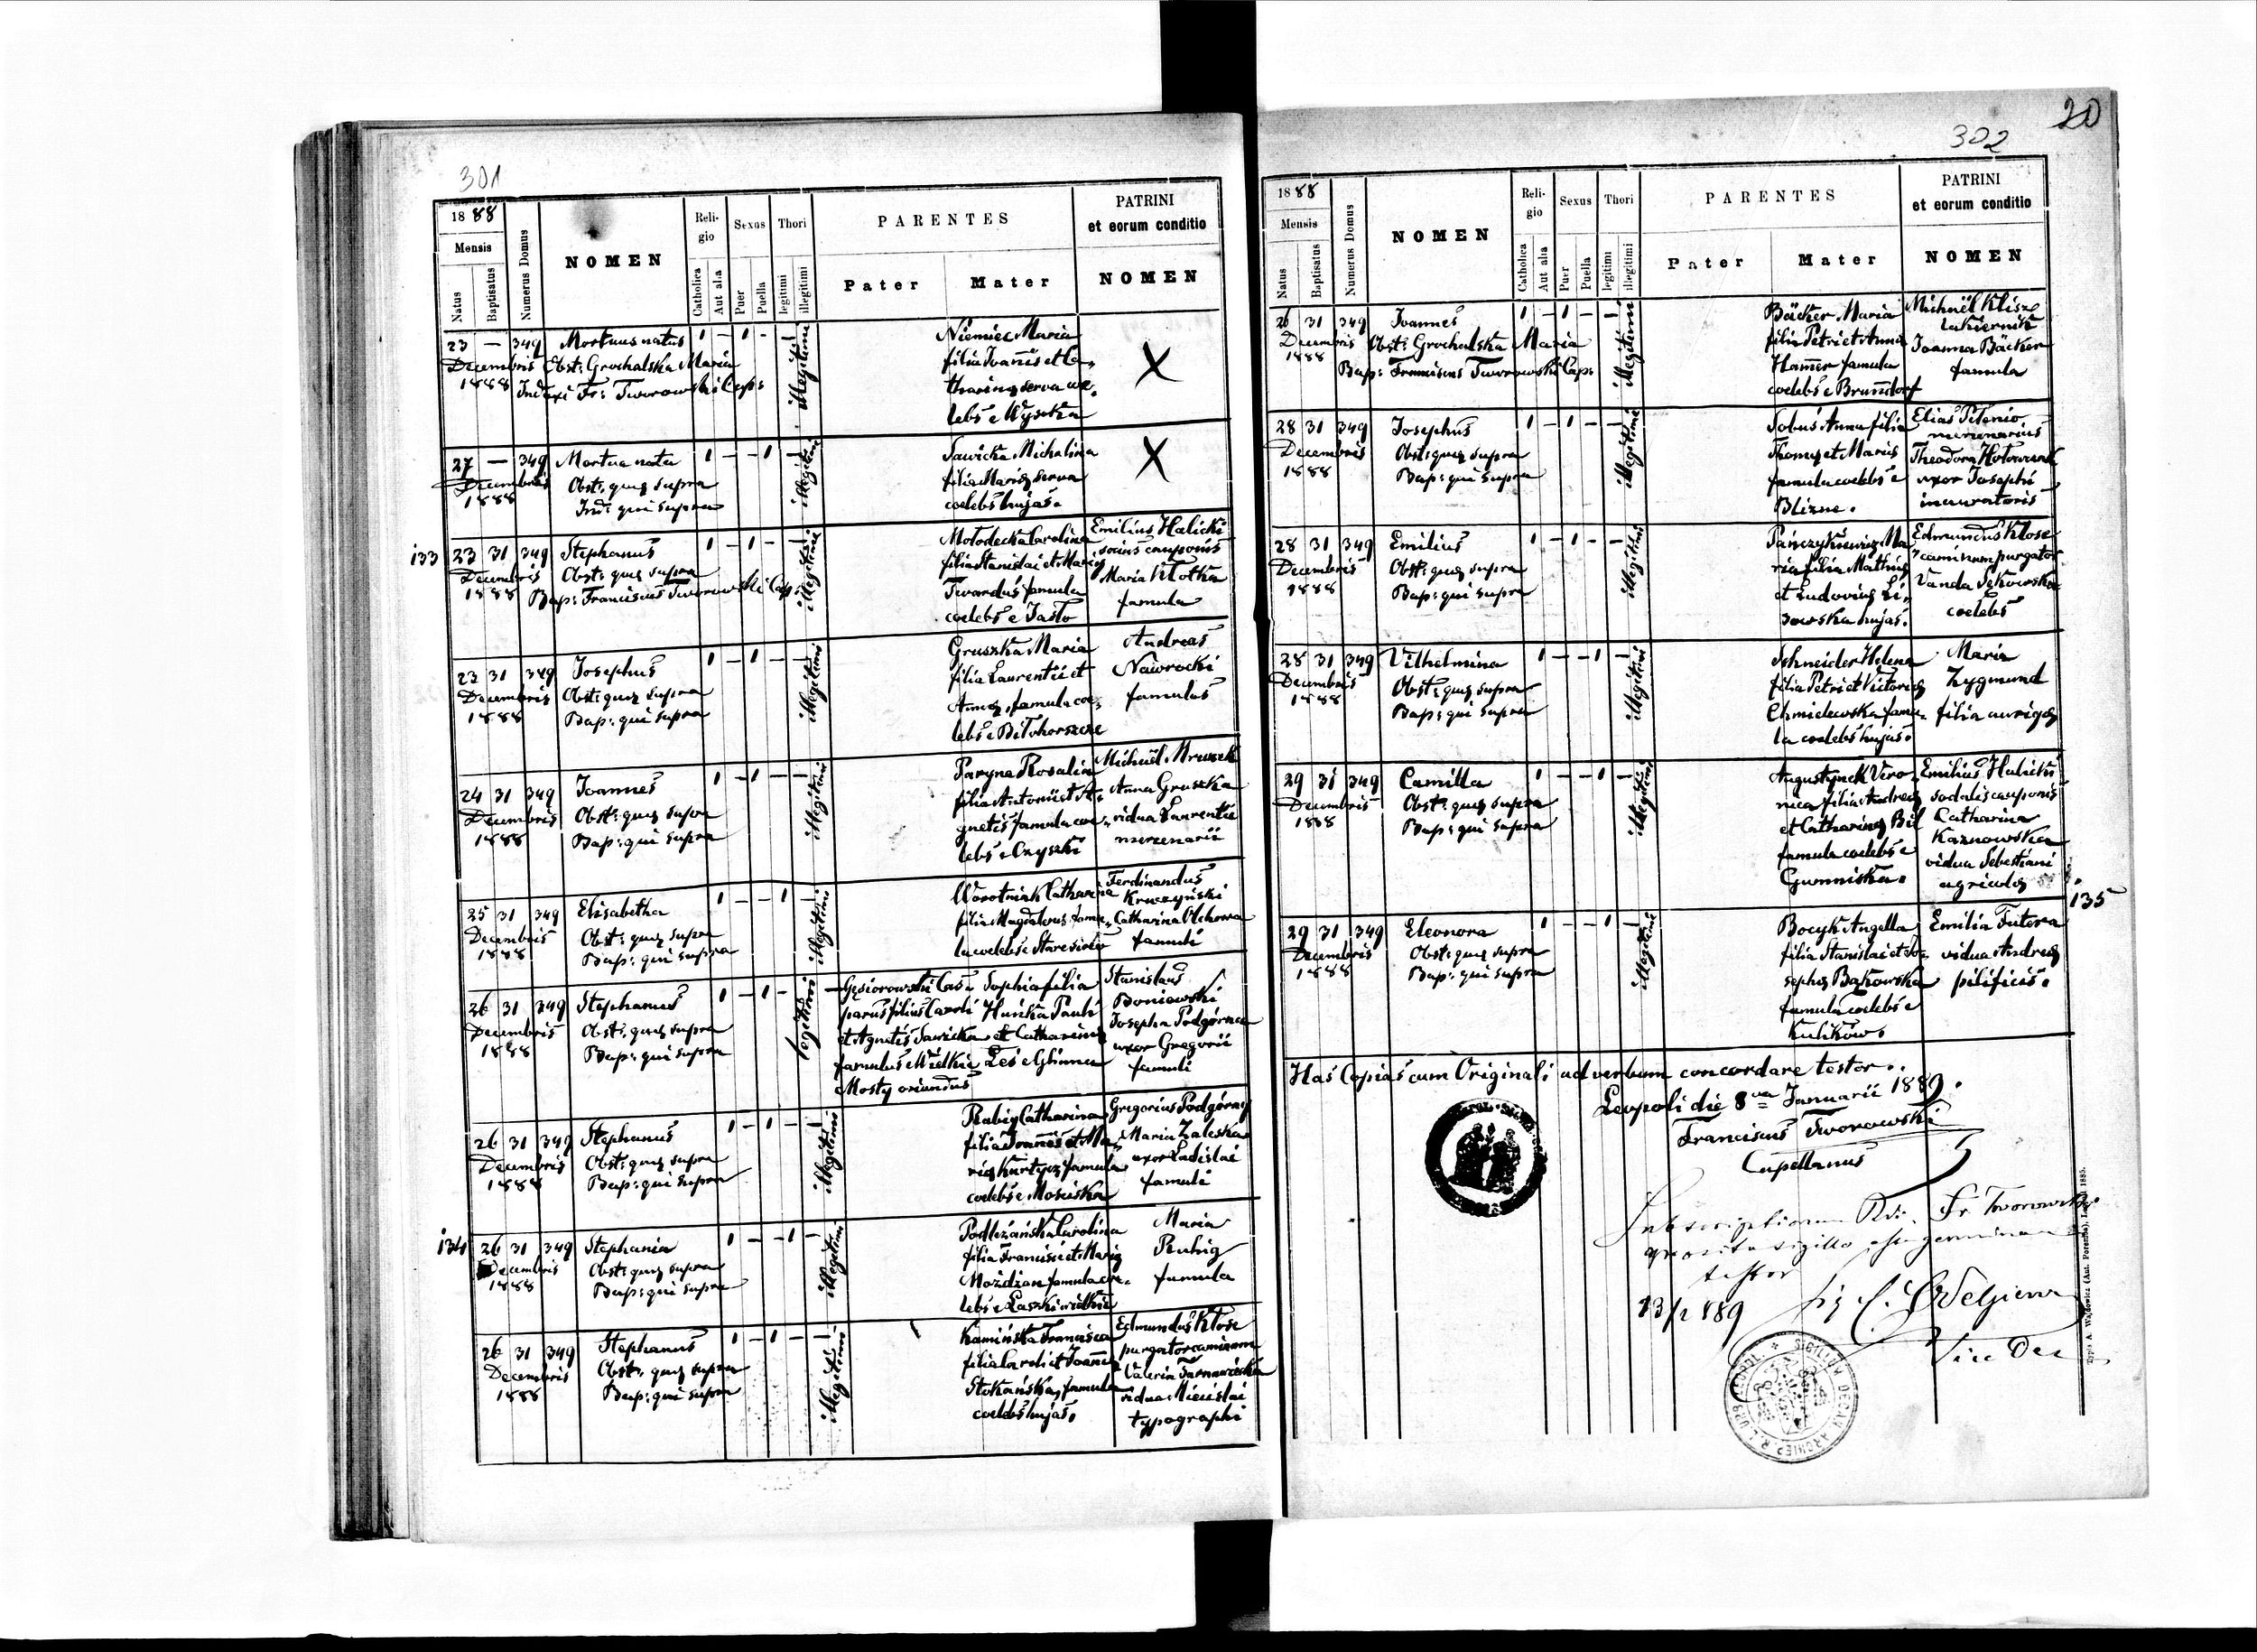 301
18 88
Mensis
Natus
Baptisatus
Numerus Domus
NOMEN
Religio
Catholica
Aut alia
Sexus
Puer
Puella
Thori
legitimi
illegitimi
PARENTES
Pater
Mater
PATRINI
et eorum conditio
NOMEN
23 — 349 Mortuus natus 1 — 1 — —
Decembris Obst: Grochalska Maria
1888 Fr: Tworowski Cap:
illegitimi
Niemiec Maria
filia Joannis et Ca-
tharinę serva cœ-
lebs e Wysocka
X
27 — 349 Mortua nata 1 — — 1 —
Decembris Obst: quę supra
1888 Ind: qui supra
illegitimi
Sawicka Michalina
filia Marię serva
coelebs hujas.
X
133
23 31 349 Stephanus 1 — 1 — —
Decembris Obst: quę supra
1888 Bap: Franciscus Tworowski Cap:
illegitimi
Mołodecka Carolina
filia Stanislai et Marię
Twardus famula
coelebs e Jasło
Emilius Halicki
socius cauponis
Maria Kłotka
famula
23 31 349 Josephus 1 — 1 — —
Decembris Obst: quę supra
1888 Bap: qui supra
illegitimi
Gruszka Maria
filia Laurentii et
Annę, famula coe-
lebs e Biłohorszcze
Andreas
Nawrocki
famulus
24 31 349 Joannes 1 — 1 — —
Decembris Obst: quę supra
1888 Bap: qui supra
illegitimi
Paryna Rosalia
filia Antonii et A-
gnetis famula coe-
lebs e Czyszki
Michaël Mruczek
Anna Gruszka
vidua Laurentii
mercenarii
25 31 349 Elisabetha 1 — — 1 —
Decembris Obst: quę supra
1888 Bap: qui supra
illegitimi
Worotniak Catharina
filia Magdalenę famu-
la coelebs e Staresioło
Ferdinandus
Kruczyński
Catharina Olchowa
famuli
26 31 349 Stephanus 1 — 1 — —
Decembris Obst: quę supra
1888 Bap: qui supra
legitimi
Gęsiorowski Cas-
parus filius Caroli
et Agnetis Sawicka
famulus e Wielkie
Mosty oriundus
Sophia filia
Huńka Pauli
et Catharinę
Leś e Glinna
Stanislaus
Boniewski
Josepha Podgórna
uxor Gregorii
famuli
26 31 349 Stephanus 1 — 1 — —
Decembris Obst: quę supra
1888 Bap: qui supra
illegitimi
Rubig Catharina
filia Joannis et Ma-
rię Kurtycz famula
coelebs e Mosciska
Gregorius Podgórny
Maria Zaleska
uxor Ladislai
famuli
134
26 31 349 Stephania 1 — — 1 —
Decembris Obst: quę supra
1888 Bap: qui supra
illegitimi
Podlezańska Carolina
filia Francisci et Marię
Moździan famula coe-
lebs e Laszki wielkie
Maria
Rubig
famula
26 31 349 Stephanus 1 — 1 — —
Decembris Obst: quę supra
1888 Bap: qui supra
illegitimi
Kamińska Francisca
filia Caroli et Joannę
Stokańska, famula
coelebs hujas.
Edmundus Kłose
purgator caminorum
Valeria Tarnawiecka
vidua Miecislai
typographi
20
302
18 88
Mensis
Natus
Baptisatus
Numerus Domus
NOMEN
Religio
Catholica
Aut alia
Sexus
Puer
Puella
Thori
legitimi
illegitimi
PARENTES
Pater
Mater
PATRINI
et eorum conditio
NOMEN
26 31 349 Joannes 1 — 1 — —
Decembris Obst: Grochalska Maria
1888 Bap: Franciscus Tworowski Cap:
illegitimi
Bäcker Maria
filia Petri et Anna
Hamer famula
coelebs e Brunndorf
Michaël Klisze
lakiernik
Joanna Bäcker
famula
28 31 349 Josephus 1 — 1 — —
Decembris Obst: quę supra
1888 Bap: qui supra
illegitimi
Sobus Anna filia
Thomę et Marię
famula coelebs e
Blizne.
Elias Pitenio
mercenarius
Theodora
uxor Josephi
inauratoris
28 31 349 Emilius 1 — 1 — —
Decembris Obst: quę supra
1888 Bap: qui supra
illegitimi
Pańczykiewicz Ma-
ria filia Mathię
et Ludovicę Li-
sowska hujas.
Edmundus Kłose
caminum purgator
Vanda Sękowska
coelebs
28 31 349 Vilhelmina 1 — — 1 —
Decembris Obst: quę supra
1888 Bap: qui supra
illegitimi
Schneider Helena
filia Petri et Victorię
Chmielewska famu-
la coelebs hujas.
Maria
Zygmund
filia aurigę
29 31 349 Camilla 1 — — 1 —
Decembris Obst: quę supra
1888 Bap: qui supra
illegitimi
Augustynek Vero-
nica filia Andreę
et Catharinę Bil
famula coelebs e
Gumniska.
Emilius Halicki
sodalis cauponis
Catharina
Kaznowska
vidua Sebestiani
agricolę
135
29 31 349 Eleonora 1 — — 1 —
Decembris Obst: quę supra
1888 Bap: qui supra
illegitimi
Bocyk Angella
filia Stanislai et Jo-
sephę Bąkowska
famula coelebs e
Kulików.
Emilia Futora
vidua Andreę
pilificis.
Has Copias cum Originali ad verbum concordare testor.
Leopoli die 8va Januarii 1889.
Franciscus Tworowski
Capellanus
Subscriptionem Rdi. Fr Tworowski
sigillo esse genuinam
testor
13/1 889
Vice Dec
Typis A. Wajdowicz (Ant. Parembs), 1885.